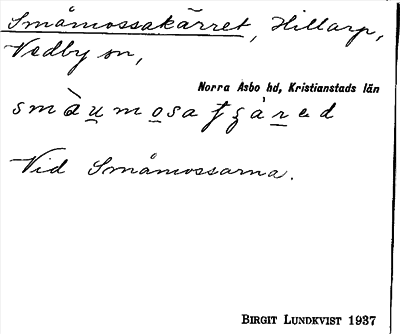 Småmossakärret, Hillarp,
Vedby sn,
Norra Åsbo hd, Kristianstads län
Vid Småmossarna.
BIRGIT LUNDKVIST 1937